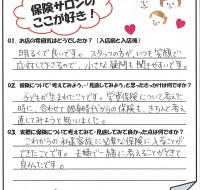 保険サロンの
ここが好き！
Q1. お店の雰囲気はどうでしたか？（入店前と入店後）
明るくて良いです。スタッフの方が、いつも笑顔で
応対して下さるので、小さな疑問も聞きやすいです。
Q2. 保険について「考えてみよう」・「見直してみよう」と思ったきっかけは何ですか？
子どもが生まれたことです。学資保険について考えた
時に、合わせて独身時代からの保険も、きちんと考え
直してみようと思いました。
Q3. 実際に保険について考えてみて・見直してみて良かった点は何ですか？
これからの私達家族に必要な保険に入ることが
できたことです。夫婦で一緒に考えることができて
良かったです。